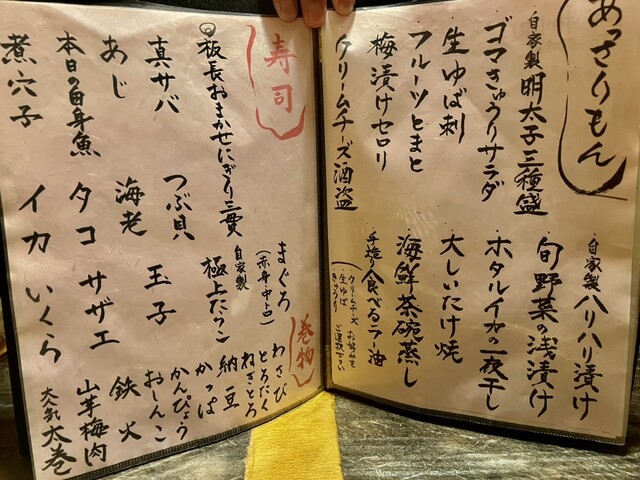 あっさりもん
自家製 明太子三種盛
ゴマきゅうりサラダ
生ゆば刺
フルーツとまと
梅漬けセロリ
クリームチズ酒盗
自家製 ハリハリ漬け
旬野菜の浅漬け
ホタルイカの一夜干し
大しいたけ焼
海鮮茶碗蒸し
手造り食べるラー油
（クリームチーズ
生ゆば
きゅうり
お好みを
ご選択下さい
寿司
板長おまかせにぎり三貫
真サバ
あじ
本日の白身魚
煮穴子
つぶ貝
海老
タコ
イカ
まぐろ
（赤身・中と）
自家製
極上たらこ
玉子
サザエ
いくら
巻物
わさび
とろたく
ねぎとろ
納豆
かっぱ
かんぴょう
おしんこ
鉄火
山芋梅肉
大巻